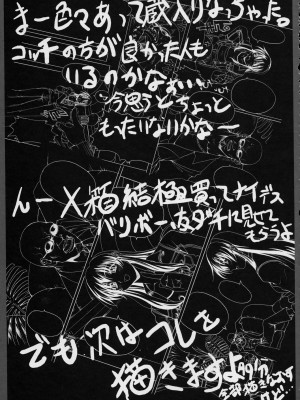 まー色々あって蔵入りなっちゃった。
コッチの方が良かった人も
いるのかなぁ、、、
今思うとちょっと
もったいないかなー
んー X箱結極買ってナイデス
バリボー、友ダチに見せて
もらうよ
でも次はコレを
描きますよ多分